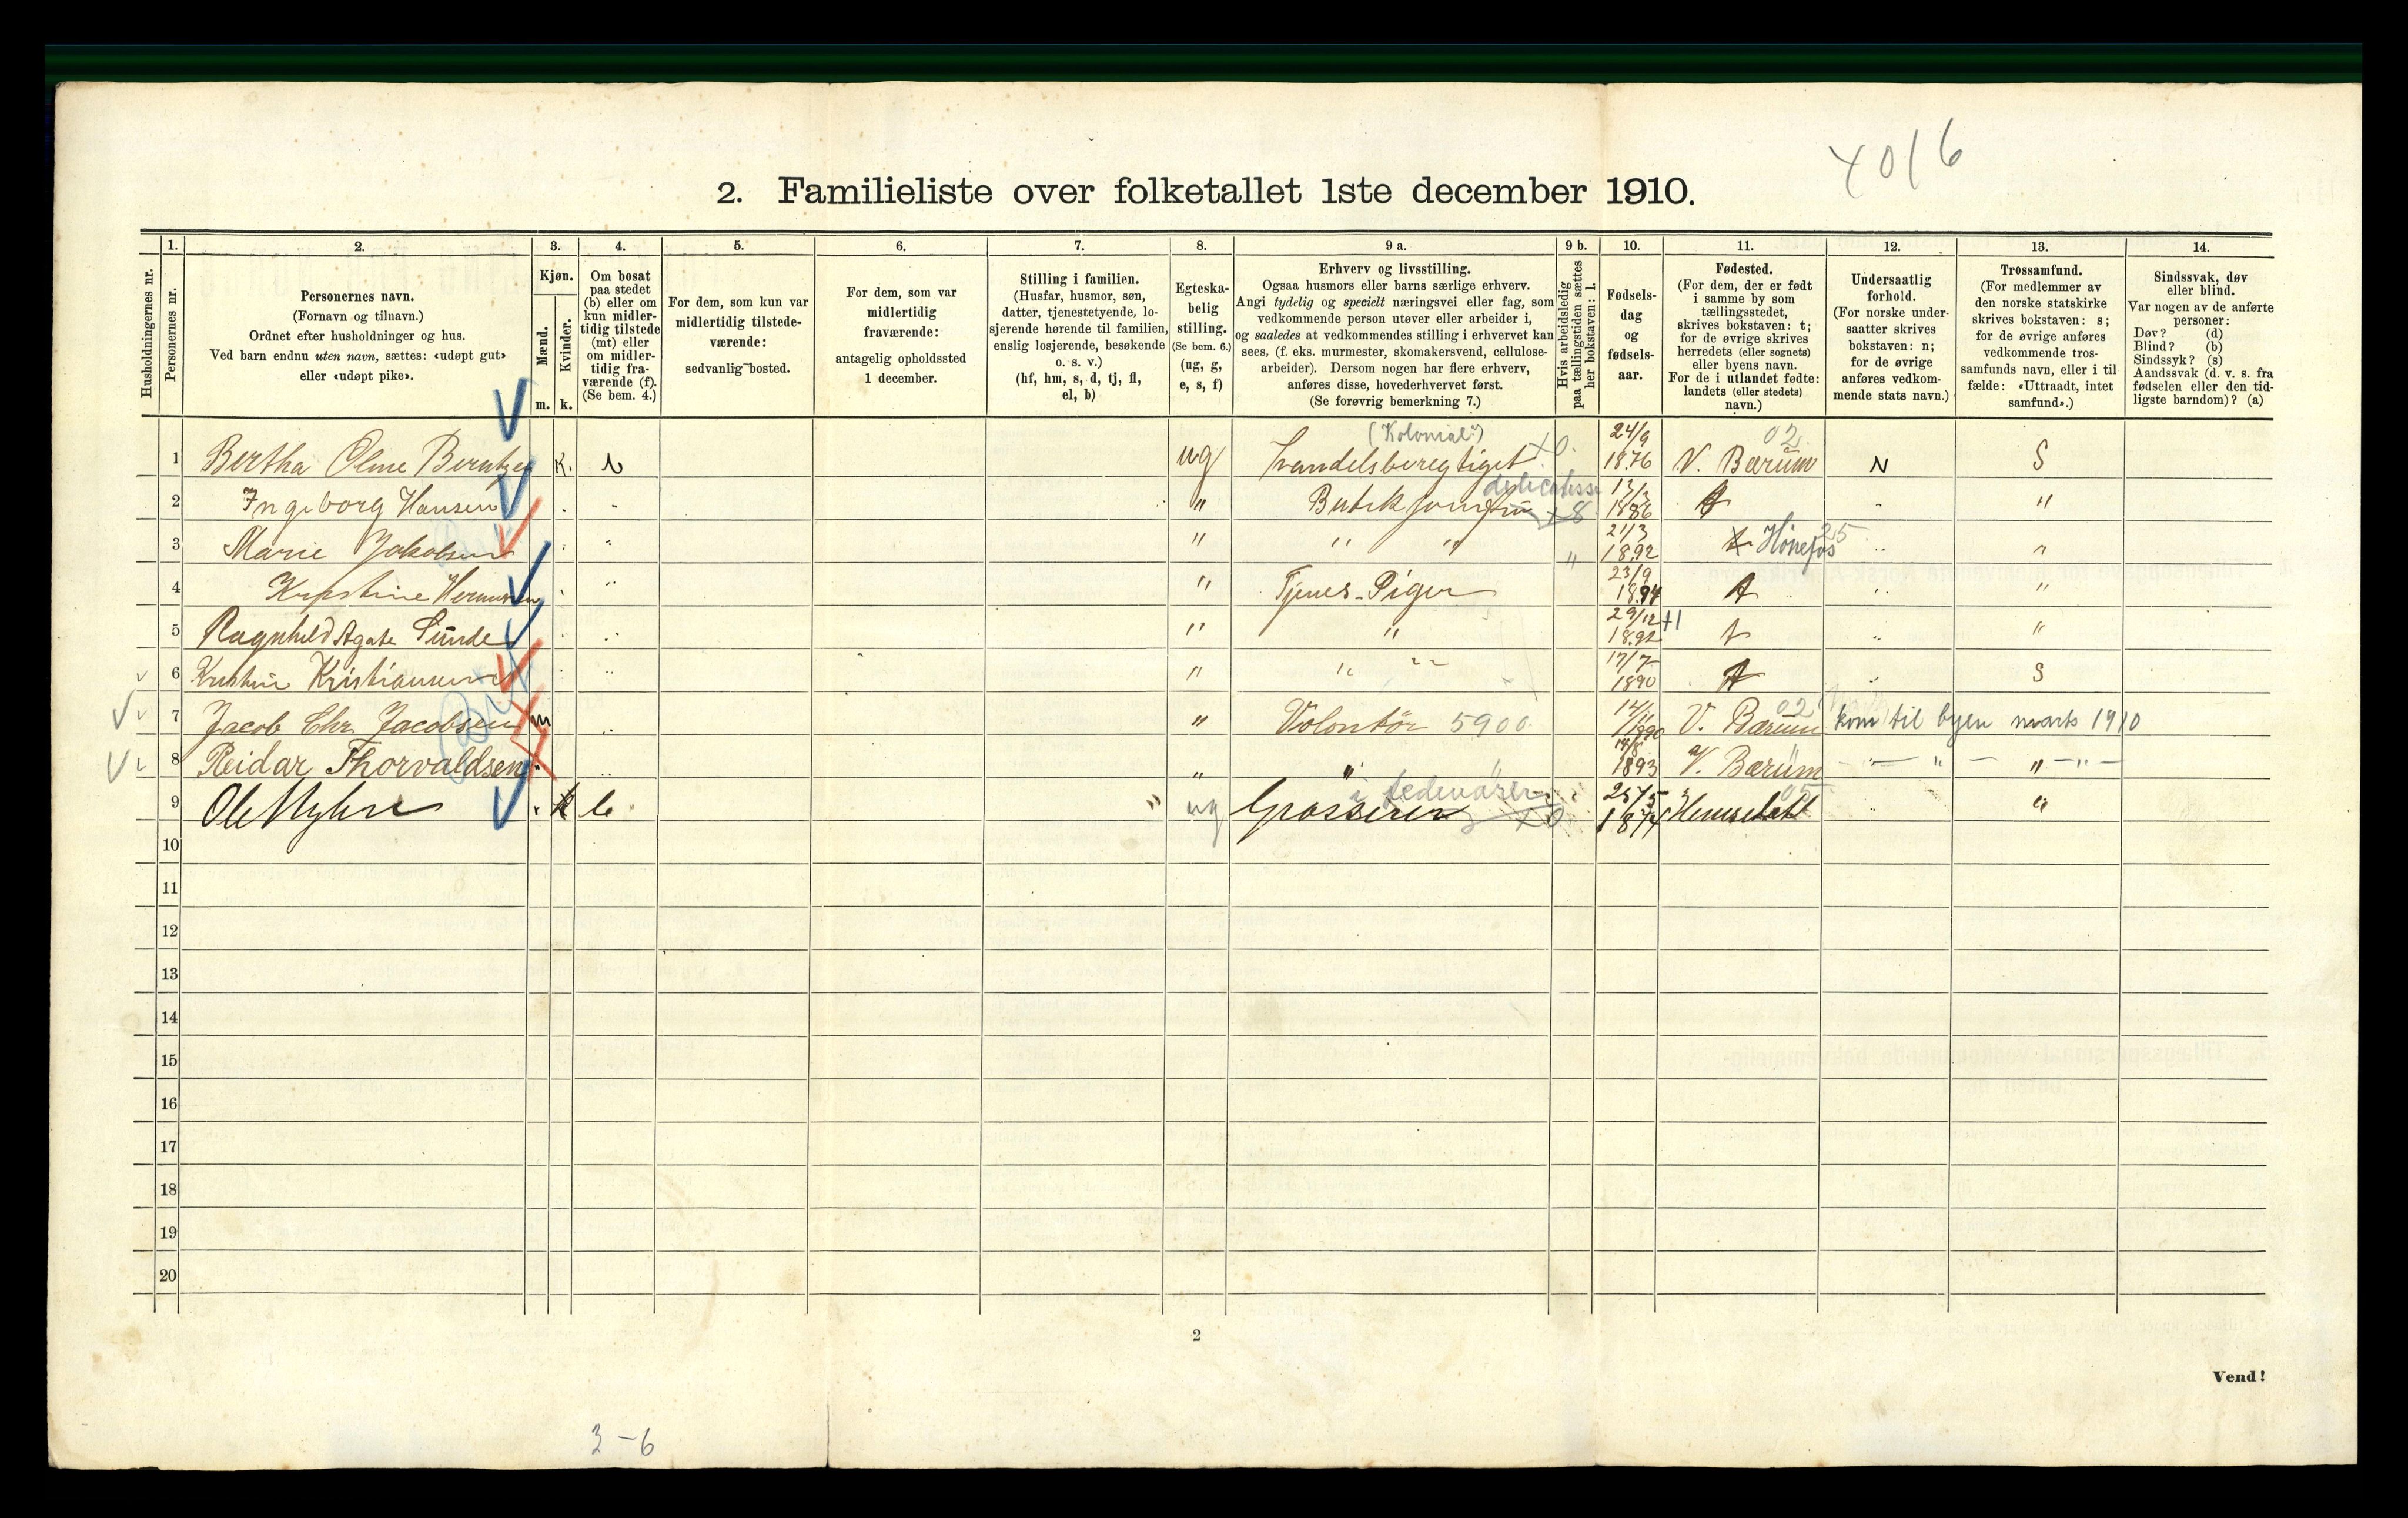 4016
2. Familieliste over folketallet 1ste december 1910.
Husholdningernes nr.
1. Personernes nr.
2. Personernes navn. (Fornavn og tilnavn.) Ordnet efter husholdninger og hus. Ved barn endnu uten navn, sættes: «udøpt gut» eller «udøpt pike».
3. Kjøn. Mænd. m. Kvinder. k.
4. Om bosat paa stedet (b) eller om kun midlertidig tilstede (mt) eller om midlertidig fraværende (f). (Se bem. 4.)
5. For dem, som kun var midlertidig tilstedeværende: sedvanlig bosted.
6. For dem, som var midlertidig fraværende: antagelig opholdssted 1 december.
7. Stilling i familien. (Husfar, husmor, søn, datter, tjenestetyende, losjerende hørende til familien, enslig losjerende, besøkende o. s. v.) (hf, hm, s, d, tj, fl, el, b)
8. Egteskabelig stilling. (Se bem. 6.) (ug, g, e, s, f)
9 a. Erhverv og livsstilling. Ogsaa husmors eller barns særlige erhverv. Angi tydelig og specielt næringsvei eller fag, som vedkommende person utøver eller arbeider i, og saaledes at vedkommendes stilling i erhvervet kan sees, (f. eks. murmester, skomakersvend, cellulosearbeider). Dersom nogen har flere erhverv, anføres disse, hovederhvervet først. (Se forøvrig bemerkning 7.)
9 b. Hvis arbeidsledig paa tællingstiden sættes her bokstaven: l.
10. Fødselsdag og fødselsaar.
11. Fødested. (For dem, der er født i samme by som tællingsstedet, skrives bokstaven: t; for de øvrige skrives herredets (eller sognets) eller byens navn. For de i utlandet fødte: landets (eller stedets) navn.)
12. Undersaatlig forhold. (For norske undersaatter skrives bokstaven: n; for de øvrige anføres vedkommende stats navn.)
13. Trossamfund. (For medlemmer av den norske statskirke skrives bokstaven: s; for de øvrige anføres vedkommende trossamfunds navn, eller i tilfælde: «Uttraadt, intet samfund».)
14. Sindssvak, døv eller blind. Var nogen av de anførte personer: Døv? (d) Blind? (b) Sindssyk? (s) Aandssvak (d. v. s. fra fødselen eller den tidligste barndom)? (a)
1 Bertha Oline Berntzen K. b ug Handelsberegtiget (Kolonial) x0. 24/9 1876 V. Bærum 02 N S
2 Ingeborg Hansen " " Butik jomfru delicatesse x8 13/3 1886 t " "
3 Marie Jakobsen " " " " " 21/3 1892 t Hønefos 25 " "
4 Kristine Hermansen " " Tjenes-Piger 23/9 1894 t " "
5 Ragnhild Agate Sunde " " " 29/12 1892 +1 t " "
6 Kristine Kristiansen " " " " 17/7 1890 t " S
7 Jacob Chr. Jacobsen m " " Volontör 5900 14/11 1890 V. Bærum 02 kom til byen marts 1910
8 Reidar Thorvaldsen " " " " 14/8 1893 V. Bærum " — " — " — " —
9 Ole Myhre k b " ug Grosserer i fedevarer x0 25/5 1874 Hemsedal 05 " "
10
11
12
13
14
15
16
17
18
19
20
2
Vend!
3-6